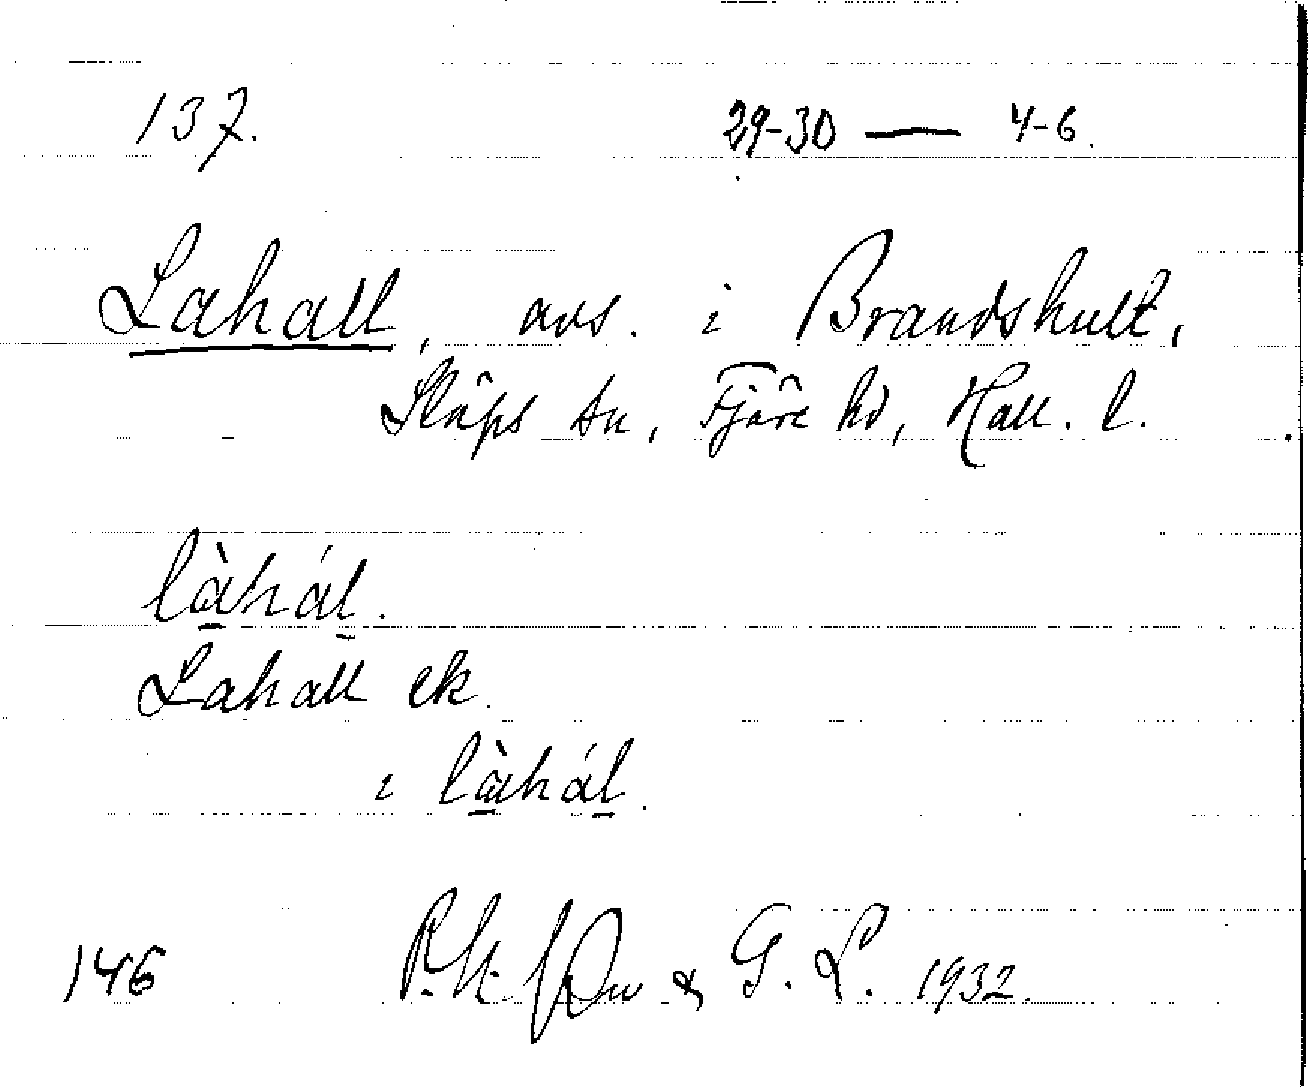 137. 29-30 — 4-6.
Lahall, avs. i Brandshult,
Släps sn, Fjäre hd, Hall. l.
làhál.
Lahall ek.
i làhál.
146 & G. L. 1932.